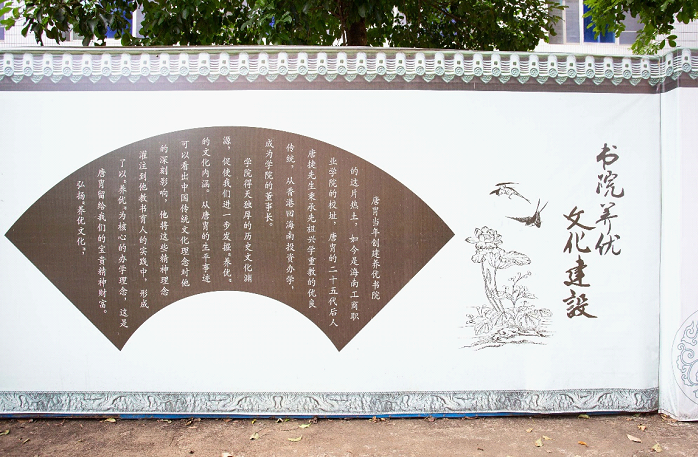 书院养优
文化建設
唐胄当年创建养优书院
的这片热土，如今是海南工商职
业学院的校址，唐胄的二十五代后人
唐捷先生秉承先祖兴学重教的优良
传统，从香港回海南投资办学，
成为学院的董事长。
学院得天独厚的历史文化渊
源，促使我们进一步发掘“养优”
的文化内涵。从唐胄的生平事迹
可以看出中国传统文化理念对他
的深刻影响，他将这些精神理念
灌注到他教书育人的实践中，形成
了以“养优”为核心的办学理念，这是
唐胄留给我们的宝贵精神财富。
弘扬“养优文化”，